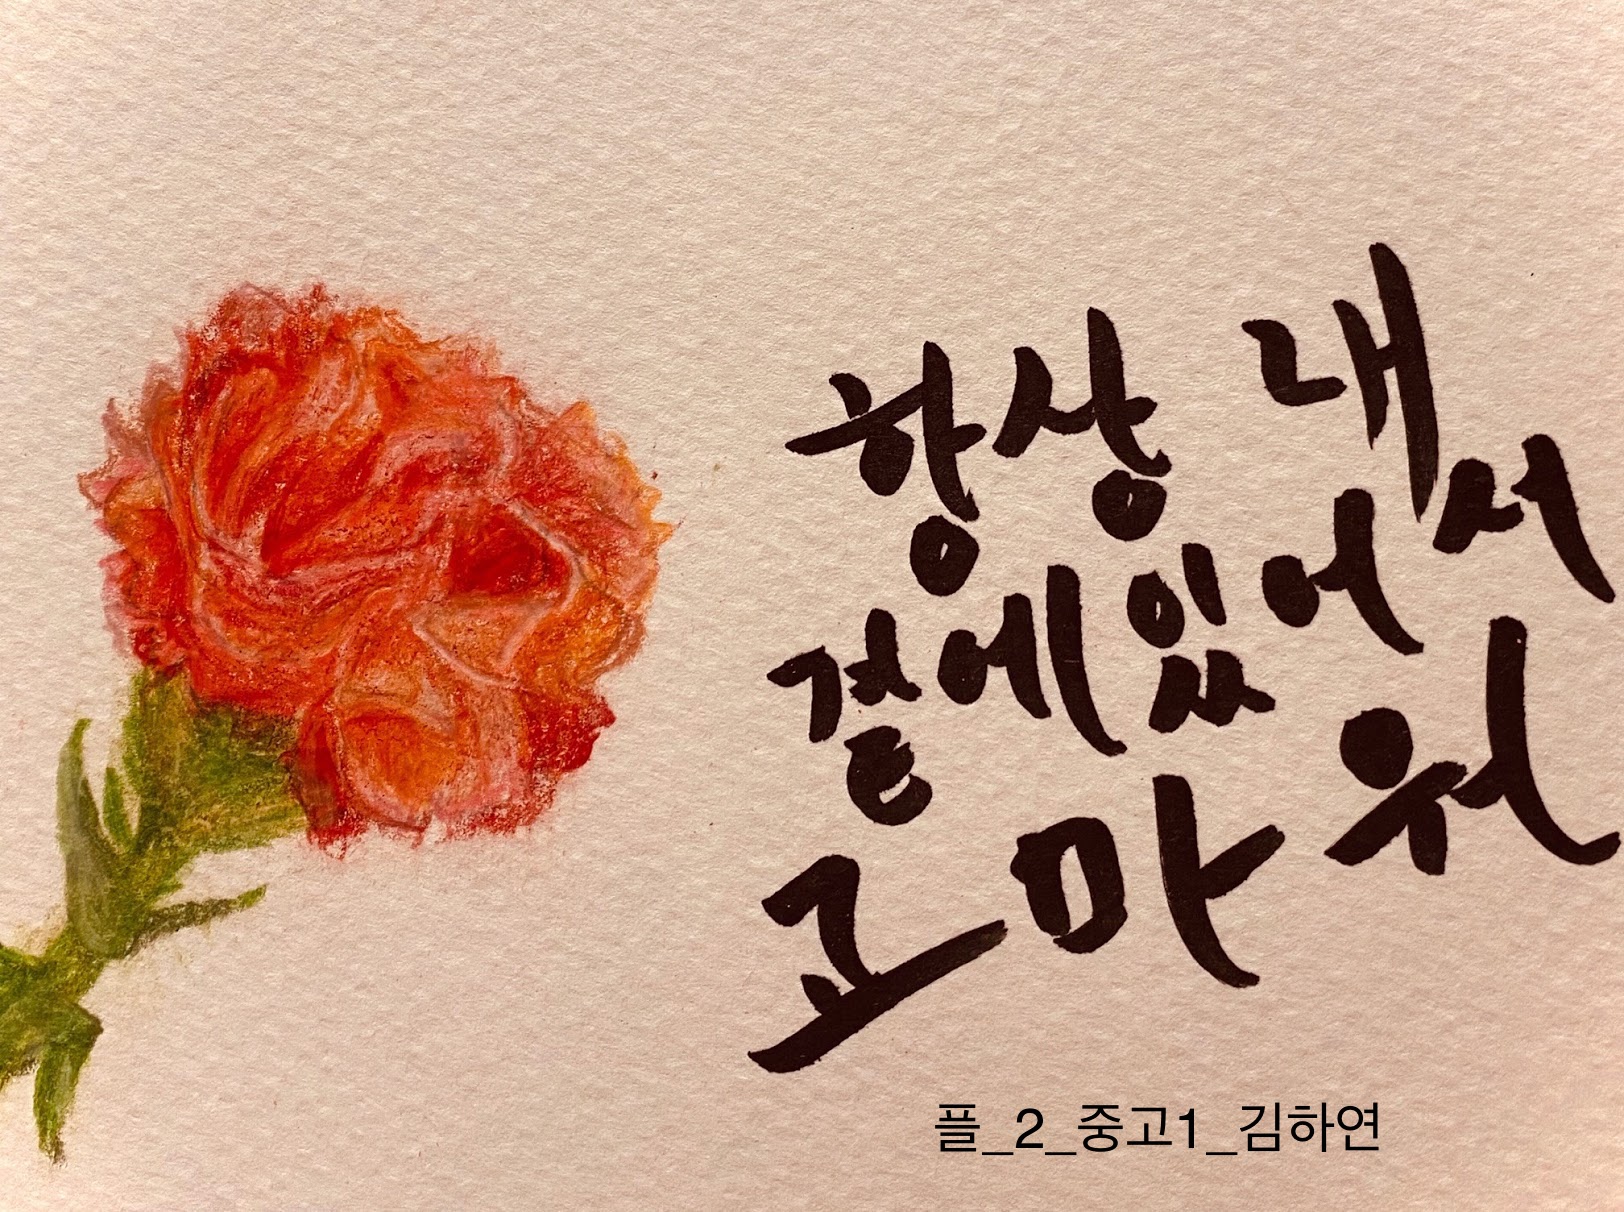 항상 내
곁에 있어서
고마워
플_2_중고1_김하연